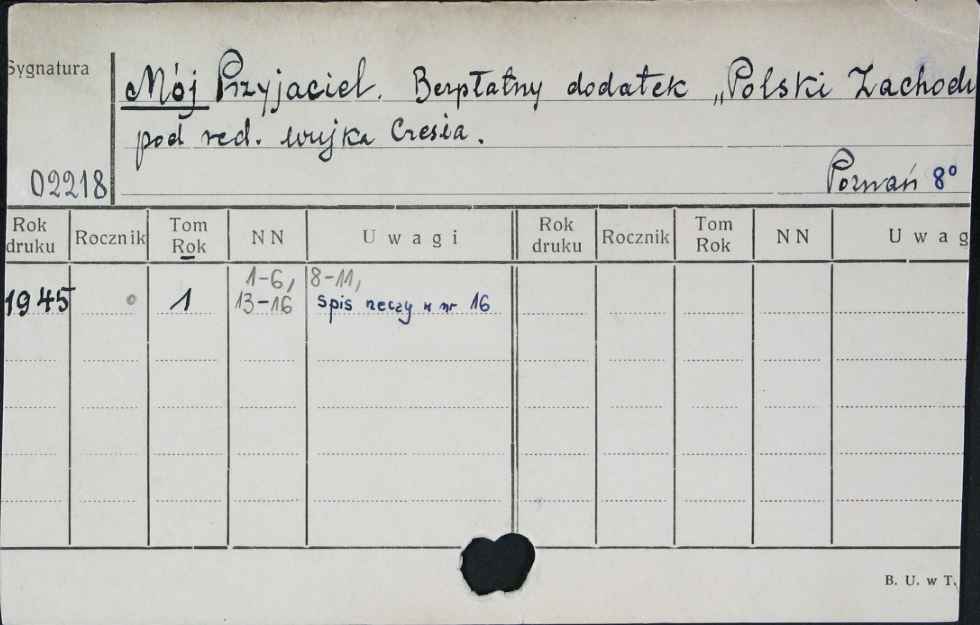 Sygnatura
Mój Przyjaciel. Bezpłatny dodatek „Polski Zachod
pod red. wujka Czesia.
02218
Poznań 8°
Rok druku Rocznik Tom Rok NN Uwagi Rok druku Rocznik Tom Rok NN Uwag
1-6, 8-11,
1945 1 13-16 spis rzeczy w nr 16
B. U. w T.